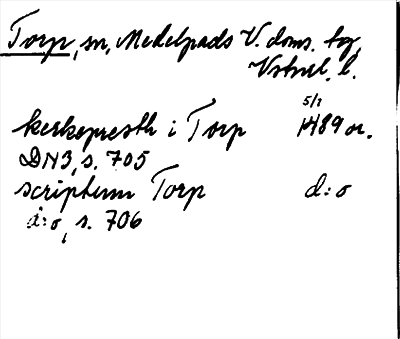 Torp, sn, Medelpads V. doms. tg,
Vstnl. l.
5/1
kerkepresth i Torp 1489 or.
DN3, s. 705
scriptum Torp d:o
d:o, s. 706